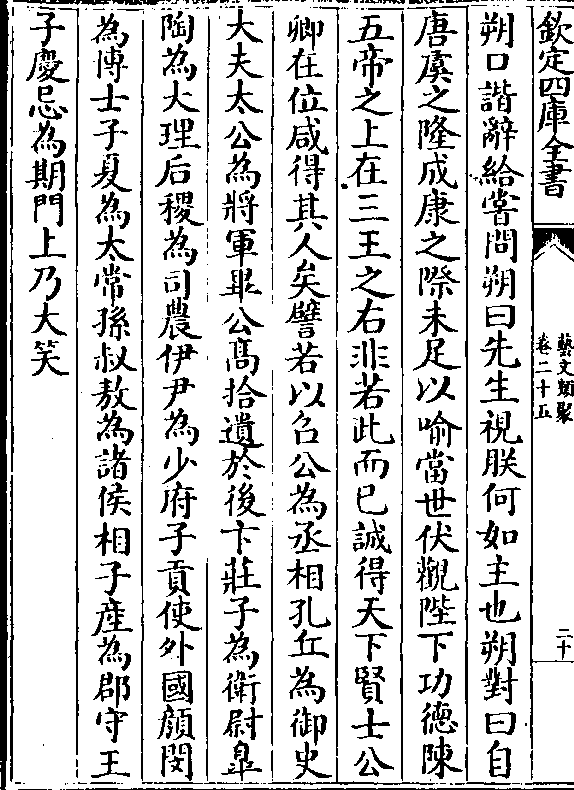 欽定四庫全書
藝文類聚
卷二十五
二十
朔口諧辭給嘗問朔曰先生視朕何如主也朔對曰自
唐虞之隆成康之際未足以喻當世伏觀陛下功德陳
五帝之上在三王之右非若此而已誠得天下賢士公
卿在位咸得其人矣譬若以召公為丞相孔丘為御史
大夫太公為將軍畢公髙拾遺於後卞莊子為衛尉臯
陶為大理后稷為司農伊尹為少府子貢使外國顔閔
為博士子夏為太常孫叔敖為諸侯相子產為郡守王
子慶忌為期門上乃大笑